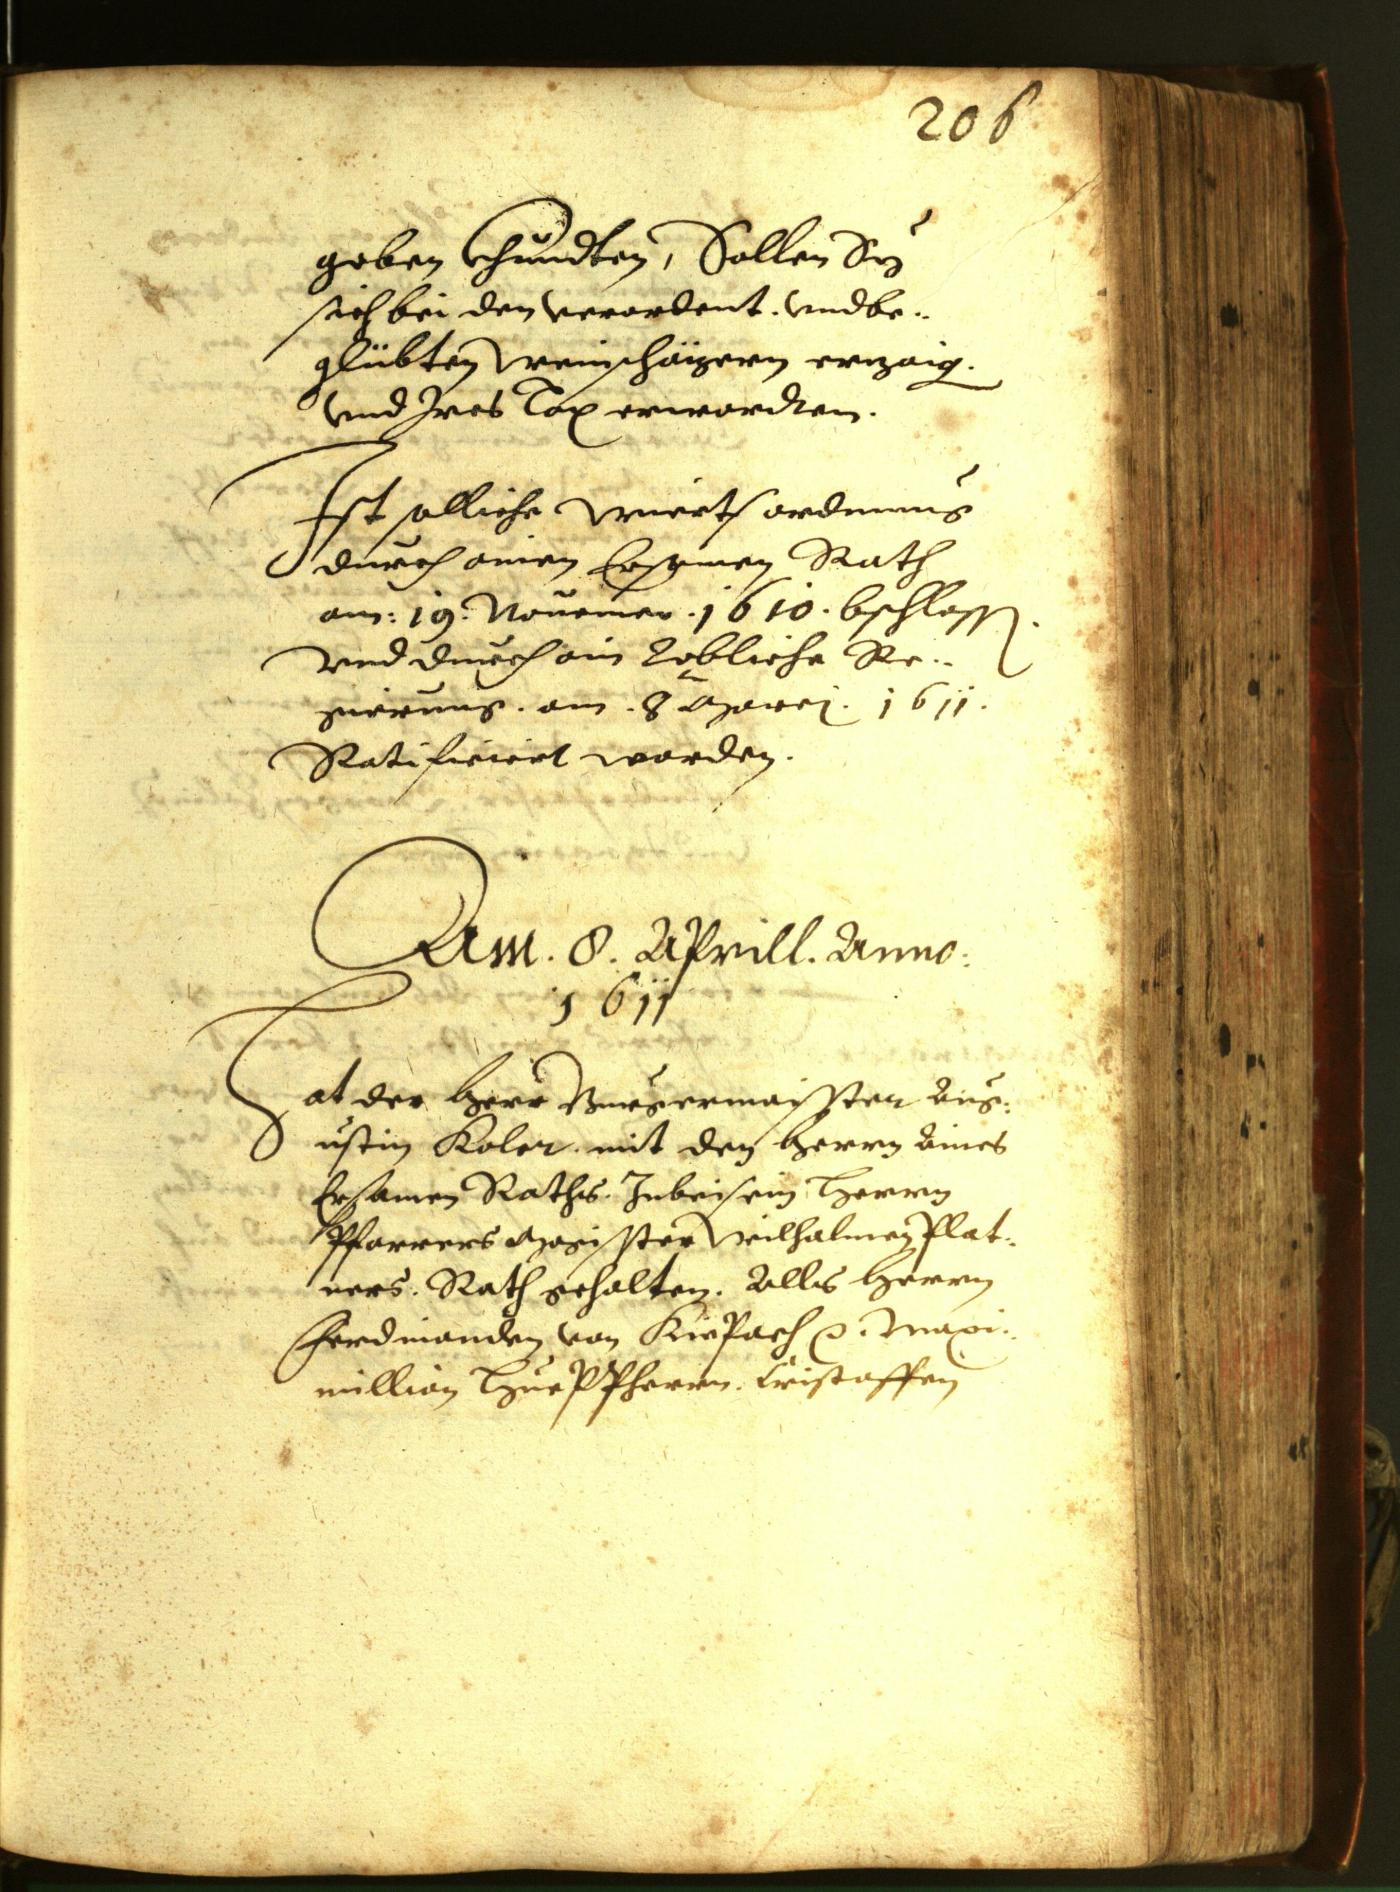 206
geben Khundten, Sollen Sy
sich bei den verordent. vnd be¬
glübten Weinschäzern erzaig.
vnd Ires Tax erwardten.
Ist solliche Wierts ordnung
durch ainen Ersamen Rath
am: 19: Nouember. 1610. bschloss.
vnd durch ain Lobliche Re¬
gierung. am. 8 Marci. 1611.
Ratificiert worden.
Am. 8. Aprill. Anno:
1611
Hat der Herr Burgermaister Aug¬
ustin Koler. mit den Herrn Aines
Ersamen Raths. In beisein Herrn
Pfarrers Magister Wilhalmen Plat¬
ners. Rath gehalten. Alls Herrn
Ferdinanden von Küepach Maxi¬
millian Hueppherrn. Cristoffen